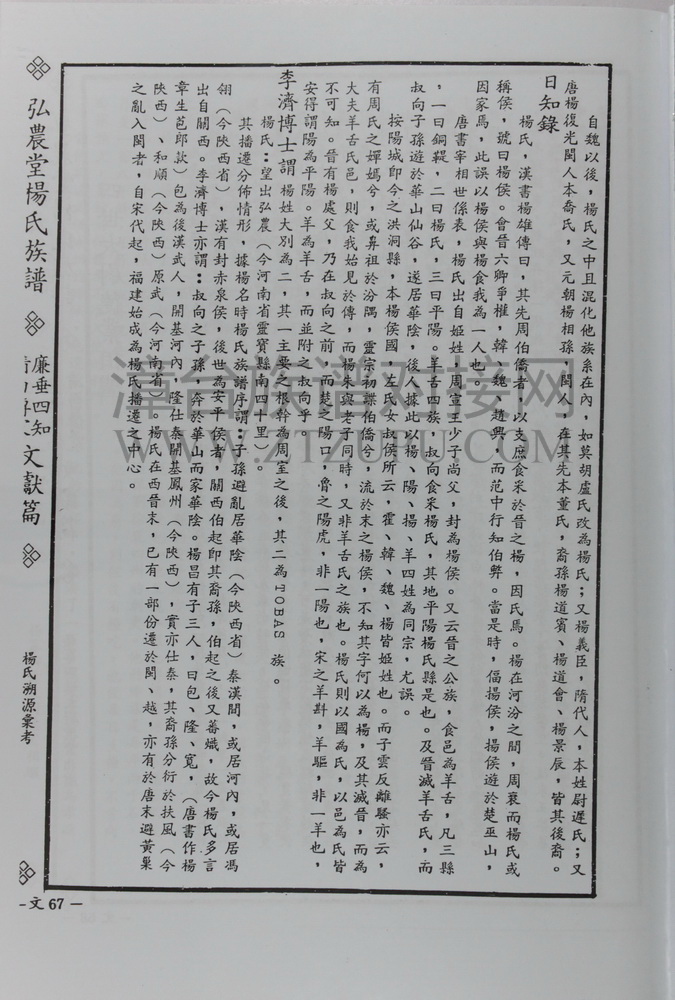 自魏以後，楊氏之中且混化他族系在內，如莫胡盧氏改為楊氏；又楊義臣，隋代人，本姓尉遲氏；又
唐楊復光閩人本喬氏，又元朝楊相孫，閩人，在其先本董氏，裔孫楊道賓、楊道會、楊景辰，皆其後裔。
日知錄
楊氏，漢書楊雄傳曰，其先周伯僑者，以支庶食采於晉之楊，因氏焉。楊在河汾之間，周衰而楊氏或
稱侯，號曰楊侯。會晉六卿爭權，韓、魏、趙興，而范中行知伯弊。當是時，偪揚侯，揚侯遊於楚巫山，
因家焉，此誤以楊侯與楊食我為一人也。
唐書宰相世係表，楊氏出自姬姓，周宣王少子尚父，封為楊侯。又云晉之公族，食邑為羊舌，凡三縣
，一曰銅鞮，二曰楊氏，三曰平陽。羊舌四族，叔向食采楊氏，其地平陽楊氏縣是也。及晉滅羊舌氏，而
叔向子孫遊於華山仙谷，遂居華陰，後人據此以楊、陽、揚、羊四姓為同宗，尤誤。
按陽城即今之洪洞縣，本楊侯國，左氏女叔侯所云，霍、韓、魏、楊皆姬姓也。而子雲反離騷亦云，
有周氏之嬋嫣兮，或鼻祖於汾隅，靈宗初諜伯僑兮，流於末之楊侯，不知其字何以為楊，及其滅晉，而為
大夫羊舌氏邑，則食我始見於傳，而楊朱與老子同時，又非羊舌氏之族也。楊氏則以國為氏，以邑為氏皆
不可知。晉有楊處父，乃在叔向之前，而楚之陽口，魯之陽虎，非一陽也，宋之羊斟，羊驅，非一羊也，
安得謂陽為平陽。羊為羊舌，而並附之叔向乎。
李濟博士謂　楊姓大別為二，其一主要之根幹為周室之後，其二為TOBAS 族。
楊氏：望出弘農（今河南省靈寶縣南四十里）。
其播遷分佈情形，據楊名時楊氏族譜序謂：子孫避亂居華陰（今陝西省）秦漢間，或居河內，或居馮
翎（今陝西省），漢有封赤泉侯，後世為安平侯者，關西伯起即其裔孫，伯起之後又蕃熾，故今楊氏多言
出自關西。李濟博士亦謂：叔向之子孫，奔於華山而家華陰。楊昌有子三人，曰包、隆、寬，（唐書作楊
章生苞郎款）包為後漢武人，開基河內，隆仕秦開基鳳州（今陝西），實亦仕秦，其裔孫分衍於扶風（今
陝西）、和順（今陝西）原武（今河南省）。楊氏在西晉末，已有一部份遷於閩、越，亦有於唐末避黃巢
之亂入閩者，自宋代起，福建始成為楊氏播遷之中心。
弘農堂楊氏族譜
廉垂四知
文獻篇
楊氏溯源彙考
-文67-
漳台族谱对接网
WWW.ZTZUPU.COM